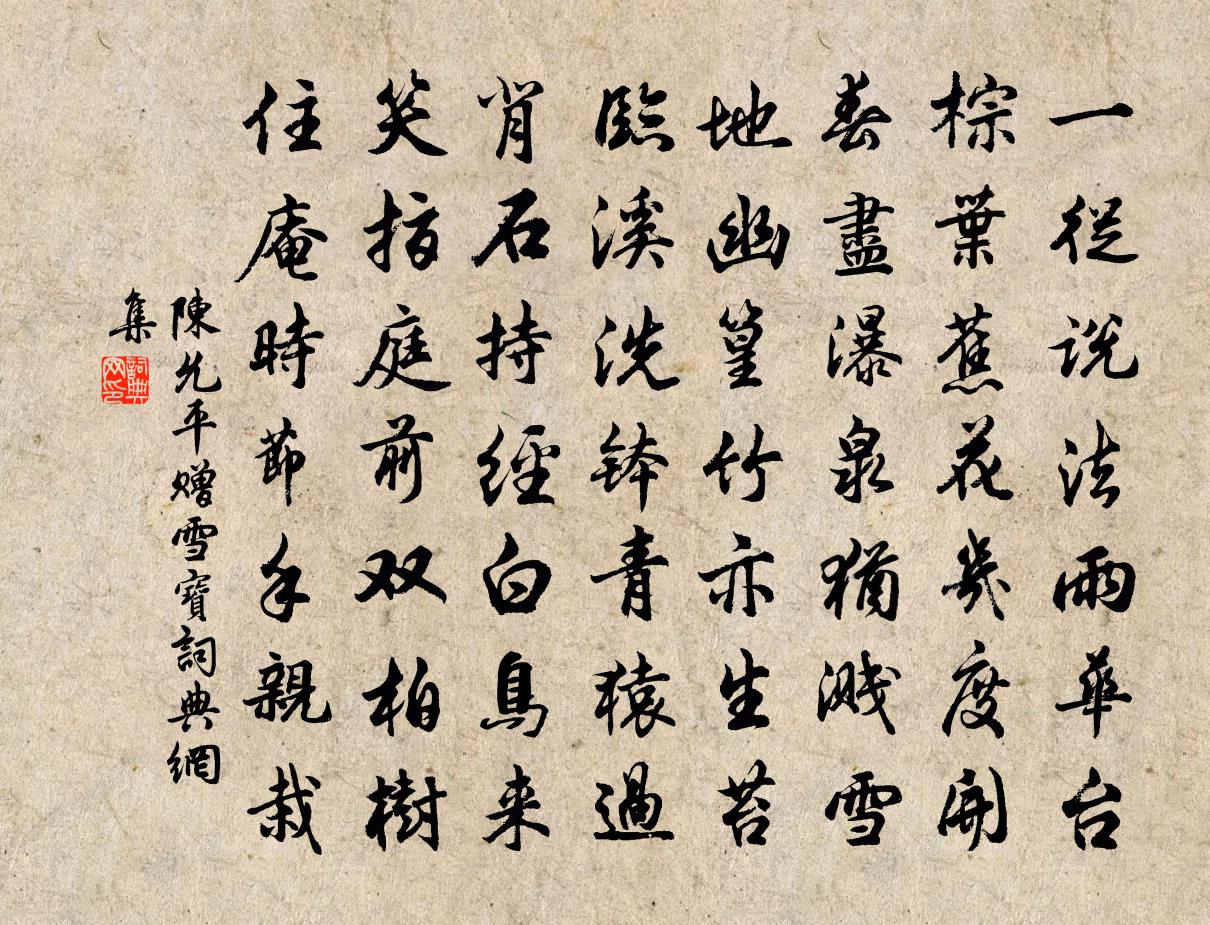 一從説法雨華台
棕葉蕉花幾度開
春盡瀑泉猶濺雪
地幽篁竹亦生苔
臨溪洗鉢青猿過
背石持經白鳥来
笑指庭前双柏樹
住庵時節手親栽
陳允平赠雪寶詞典網
集
詞典
网印